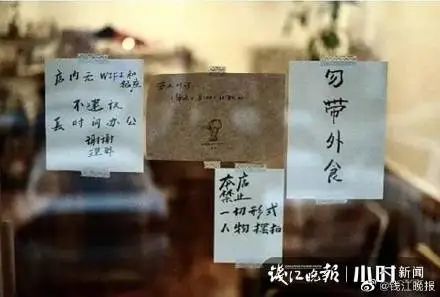 店内无 WIFI 和
插座!
不建议
长时间办公
谢谢
理解
勿带外食
本店
禁止
一切形式
人物摆拍
钱江晚报 小时新闻
@钱江晚报